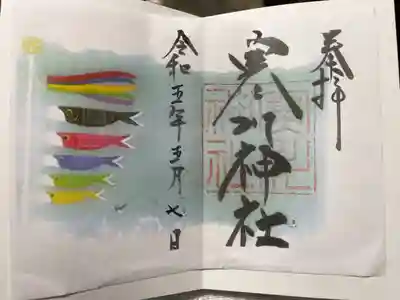 奉拝
寒川神社
令和五年五月七日